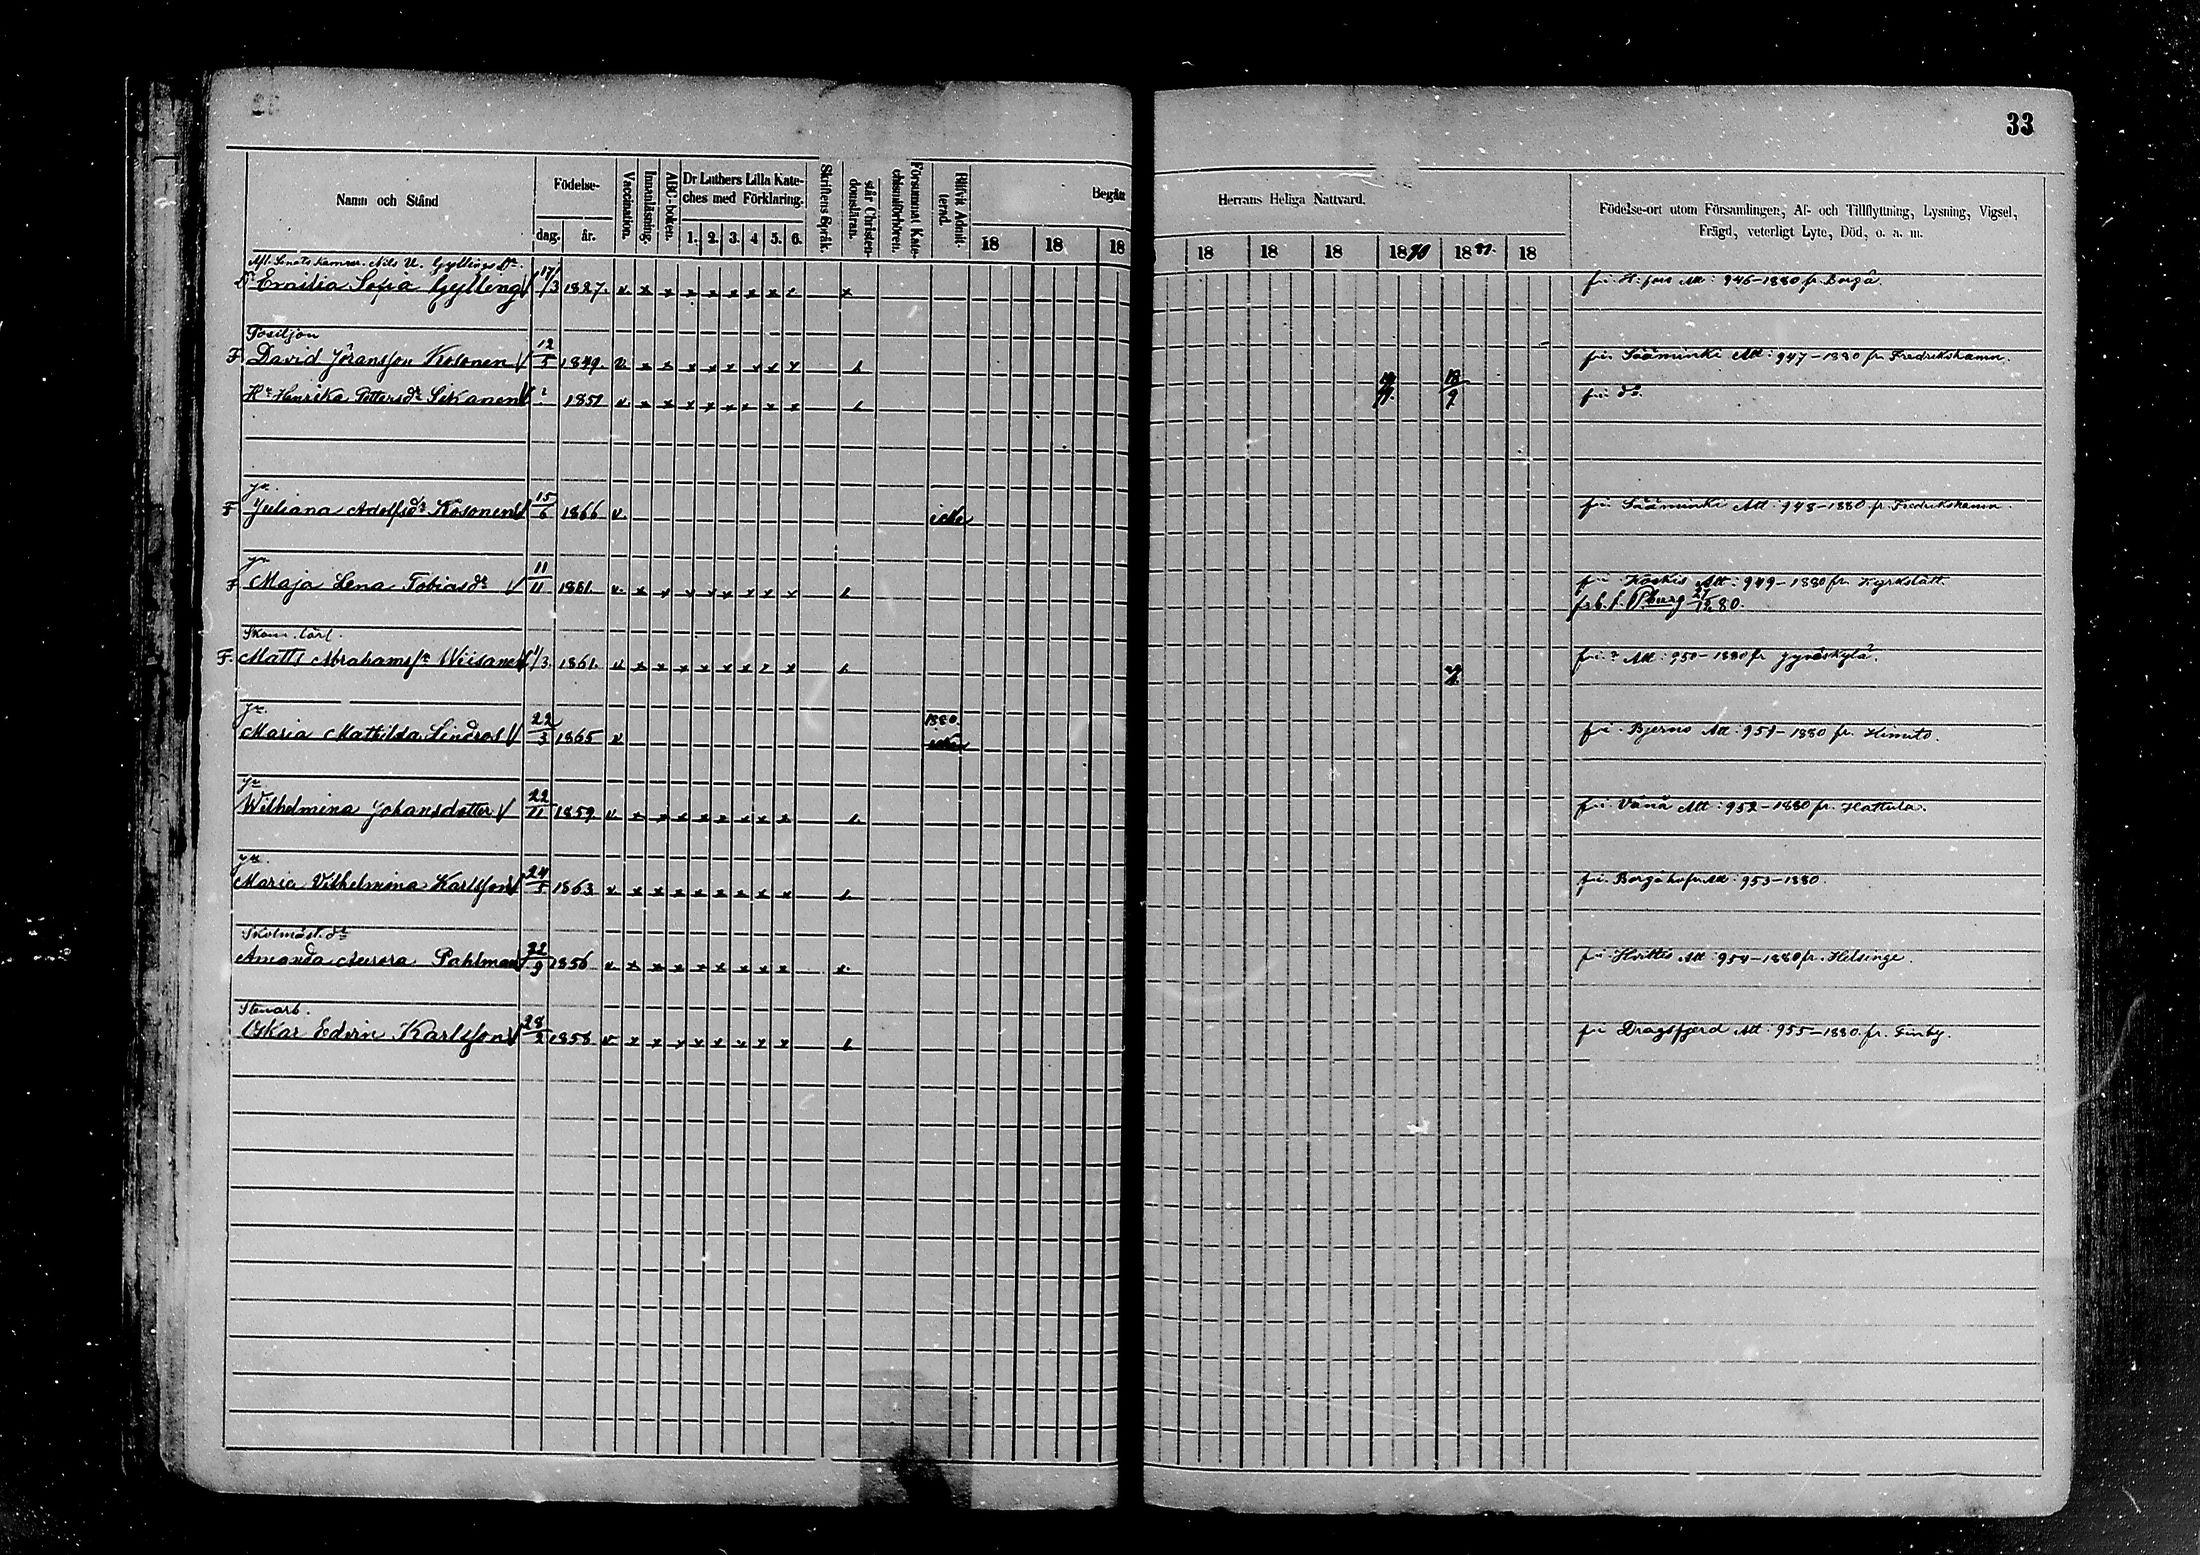 33
Namn och Stånd
Födelse-
dag. år.
Vaccination.
Innanläsning.
ABC-boken.
Dr Luthers Lilla Kate-
ches med Förklaring.
1. 2. 3. 4 5. 6.
Skriftens Språk.
står Christen-
domsläran.
Försummat Kate-
chismiförhören.
Blifvit Admit-
terad.
Begått
18 18 18
Herrans Heliga Nattvard.
18 18 18 1880 1881. 18
Födelse-ort utom Församlingen, Af- och Tillflyttning, Lysning, Vigsel,
Frägd, veterligt Lyte, Död, o. a. m.
Afl. Senats Kamrer. Nils U. Gyllings Dr.
Emilia Sofia Gylling 17/3 1827. v x x x x x x x x fr. H:fors Att: 946-1880 fr. Borgå.
Postiljon
F David Göransson Kosonen 12/5 1849. v. x x x x x x x x fr. Sääminki Att: 947-1880 fr. Fredrikshamn.
Hu Henrika Pettersdr Sikanen 1851 v x x x x x x x x 18/9 fr. do.
Ja.
F Juliana Adolfsdr Kosonen 15/6 1866 v. icke fr. Sääminki Att: 948-1880 fr. Fredrikshamn.
Ja
F Maja Lena Tobiasdr 11/11 1861. v. x x x x x x x x fr. Koskis Att: 949-1880 fr. Kyrkslätt.
frb. f. Pburg 80.
Skom. lärl.
F. Matts Abrahamsson Wiisanen 1/3. 1861. v x x x x x x x x fr. ? Att: 950-1880 fr Jyväskylä.
Ja. 1880
Maria Mathilda Lindros 22/3 1865 v icke fr. Bjerno Att: 951-1880 fr. Kimito.
Ja
Wilhelmina Johansdotter 22/11 1859 v. x x x x x x x x fr. Vånå Att: 952-1880 fr. Hattula.
Ja.
Maria Vilhelmina Karlsson 24/5 1863 v x x x x x x x x fr. Borgå Att: 953-1880.
Skolmäst. dr
Amanda Aurora Pahlman 22/9 1856 v. x x x x x x x x x. fr. Hvittis Att: 954-1880 fr. Helsinge.
Stenarb.
Oskar Edvin Karlsson 28/2 1858 v x x x x x x x x fr Dragsfjerd Att: 955-1880. fr. Finby.